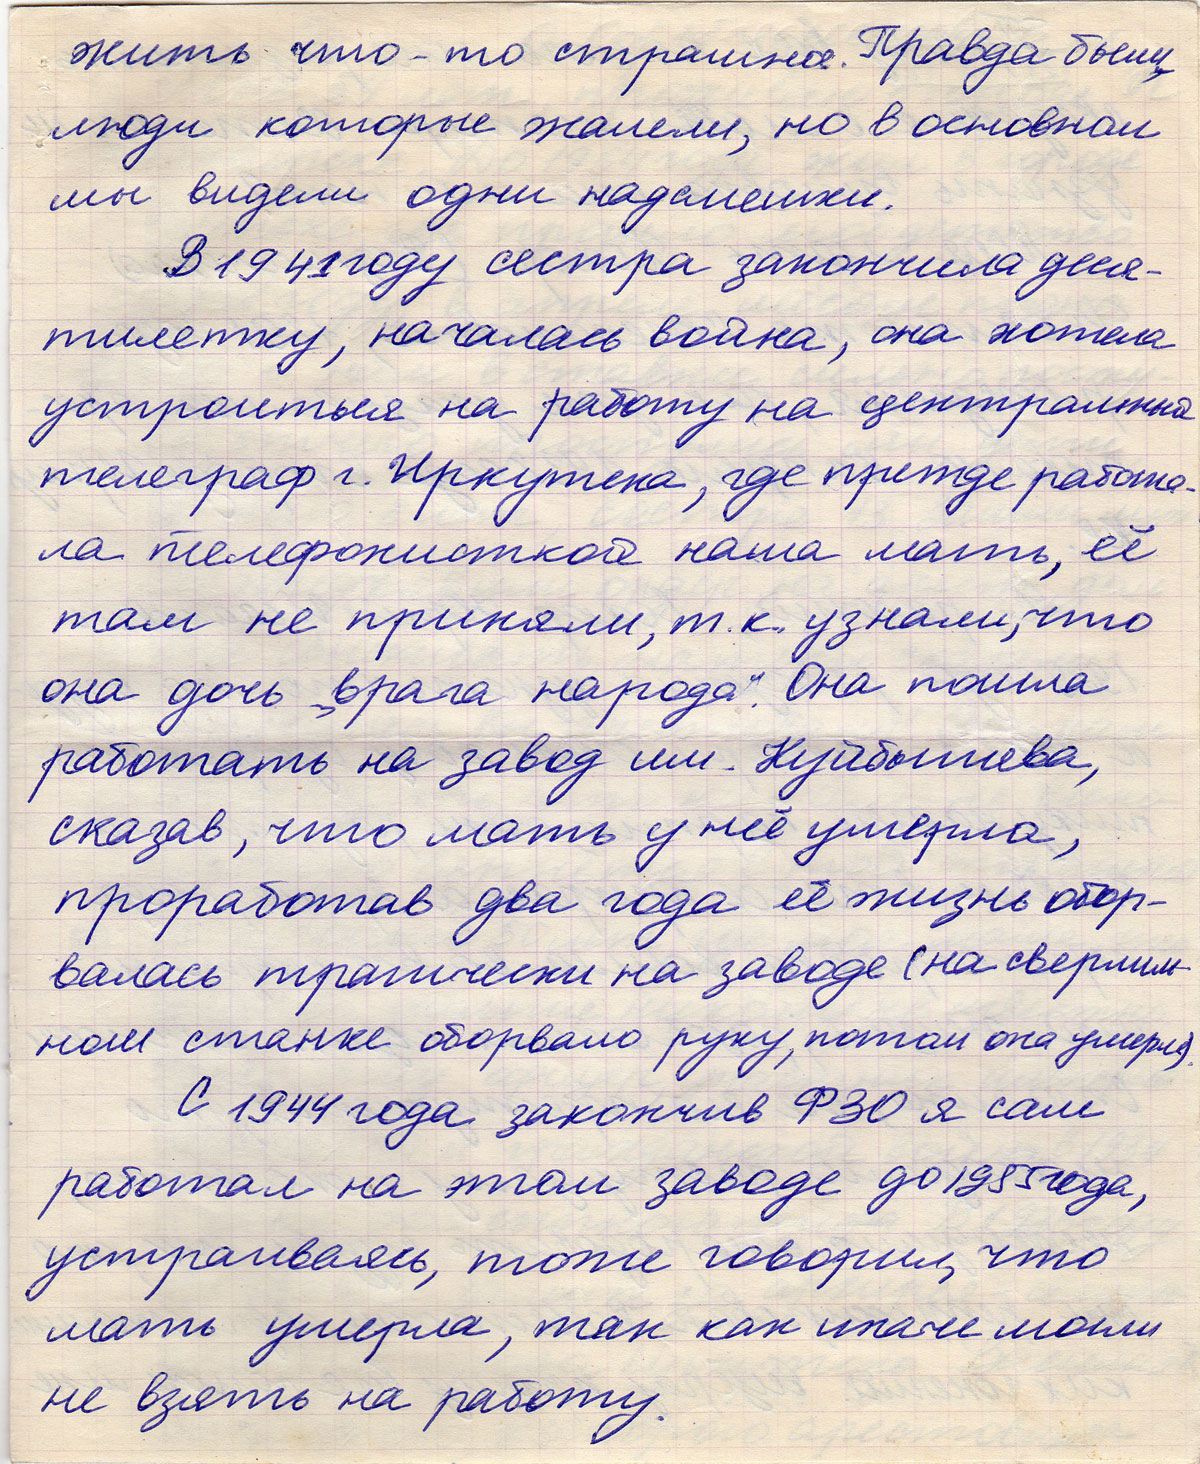 жить что-то страшное. Правда были
люди которые жалели, но в основном
мы видели одни надсмешки.
В 1941 году сестра закончила деся-
тилетку, началась война, она хотела
устроиться на работу на центральный
телеграф г. Иркутска, где прежде работа-
ла телефонисткой наша мать, её
там не приняли, т.к. узнали, что
она дочь „врага народа“. Она пошла
работать на завод им. Куйбышева,
сказав, что мать у неё умерла,
проработав два года её жизнь обор-
валась трагически на заводе (на сверлиль-
ном станке оборвало руку, потом она умерла).
С 1944 года закончив ФЗО я сам
работал на этом заводе до 1985 года,
устраиваясь, тоже говорил, что
мать умерла, так как иначе могли
не взять на работу.